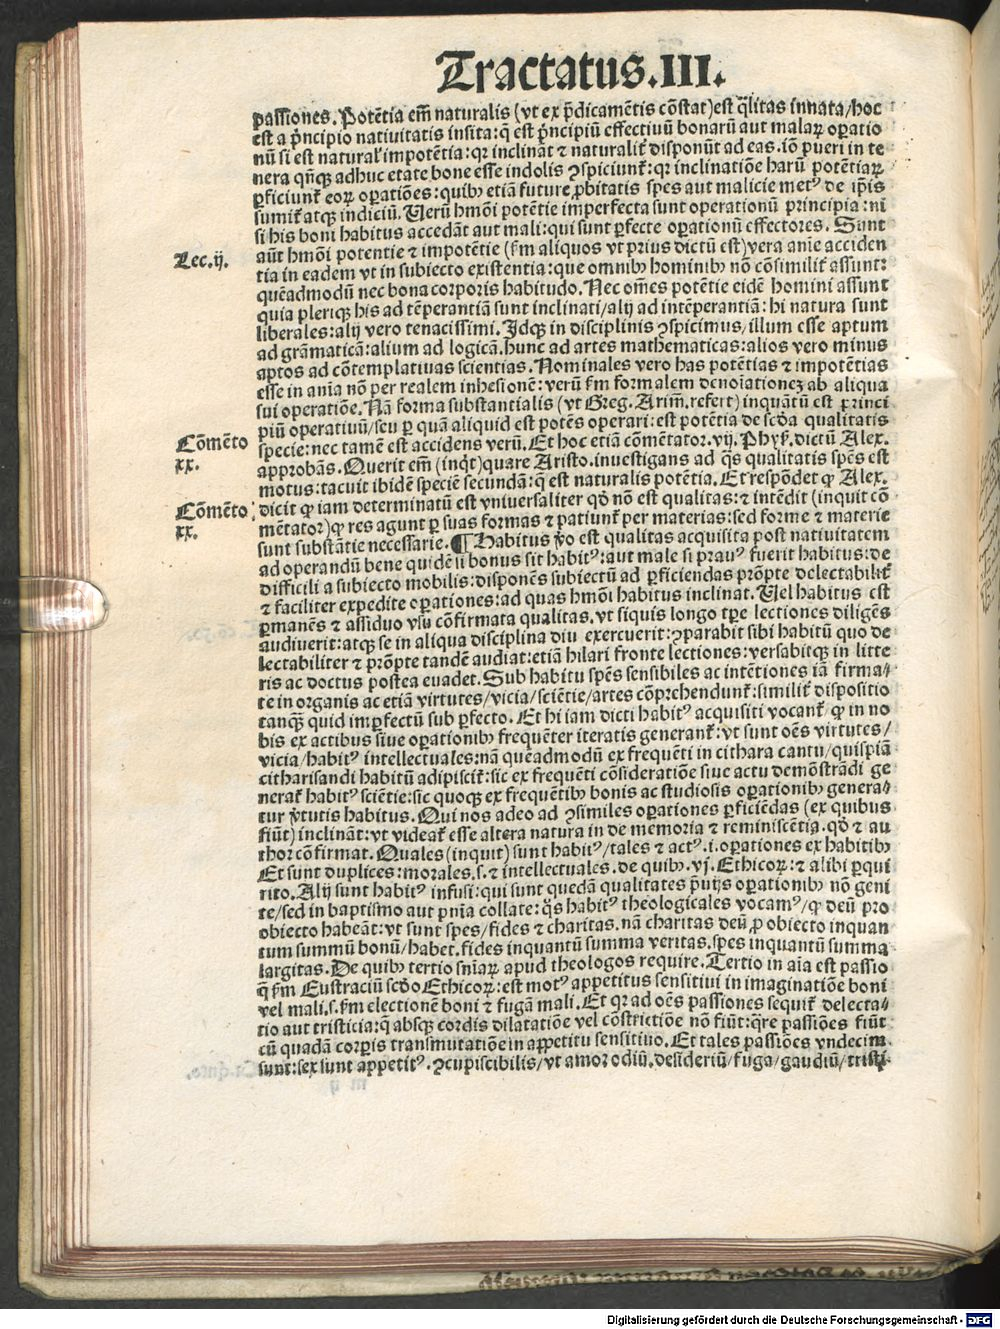 Tractatus.III.
passiones. Potẽtia em̃ naturalis (vt ex p̃dicamẽtis cõstat) est q̃litas innata/hoc
est a p̃ncipio natiuitatis insita: q̃ est p̃ncipiũ effectiuũ bonarũ aut malaꝝ oꝑatio
nũ si est natural' impotẽtia: qꝛ inclinãt ⁊ naturalit̃ disponũt ad eas. iõ pueri in te
nera qñqꝫ adhuc etate bone esse indolis ꝯspiciunt̃: qꝛ inclinatiõe harũ potẽtiaꝝ
ꝑficiunt̃ eoꝝ oꝑatiões: quibꝰ etiã future ꝓbitatis spes aut malicie metꝰ de ip̃is
sumit̃ atqꝫ indiciũ. Verũ hmõi potẽtie imperfecta sunt operationũ principia: ni
si his boni habitus accedãt aut mali: qui sunt ꝑfecte oꝑationũ effectores. Sunt
Lec.ij.
aũt hmõi potentie ⁊ impotẽtie (ẜm aliquos vt prius dictũ est) vera anie acciden
tia in eadem vt in subiecto existentia: que omnibꝰ hominibꝰ nõ cõsimilit̃ assunt:
quẽadmodũ nec bona corporis habitudo. Nec om̃es potẽtie eidẽ homini assunt
quia pleriqꝫ his ad tẽperantiã sunt inclinati/alij ad intẽperantiã: hi natura sunt
liberales: alij vero tenacissimi. Idqꝫ in disciplinis ꝯspicimus/illum esse aptum
ad grãmaticã: alium ad logicã. hunc ad artes mathematicas: alios vero minus
aptos ad cõtemplatiuas scientias. Nominales vero has potẽtias ⁊ impotẽtias
esse in anĩa nõ per realem inhesionẽ: verũ ẜm formalem denoĩationeꝫ ab aliqua
sui operatiõe. Nã forma substantialis (vt Greg. Arim̃. refert) inquãtũ est princi
piũ operatiuũ/seu ꝑ quã aliquid est potẽs operari: est potẽtia de scďa qualitatis
Cõmẽto
xx.
specie: nec tamẽ est accidens verũ. Et hoc etiã cõmẽtator. vij. Phyẜ. dictũ Alex.
approbãs. Querit em̃ (inq̃t) quare Aristo. inuestigans ad q̃s qualitatis sp̃es est
motus: tacuit ibidẽ speciẽ secundã: q̃ est naturalis potẽtia. Et respõdet ꝙ Alex.
Cõmẽto
xx.
dicit ꝙ iam determinatũ est vniuersaliter qďo nõ est qualitas: ⁊ intẽdit (inquit cõ
mẽtator) ꝙ res agunt ꝑ suas formas ⁊ patiunt̃ per materias: sed forme ⁊ materie
sunt substãtie necessarie. ¶ Habitus ṽo est qualitas acquisita post natiuitatem
ad operandũ bene quidẽ si bonus sit habitꝰ: aut male si prauꝰ fuerit habitus: de
difficili a subiecto mobilis: disponẽs subiectũ ad ꝑficiendas prõpte delectabilit̃
⁊ faciliter expedite oꝑationes: ad quas hmõi habitus inclinat. Vel habitus est
ꝑmanẽs ⁊ assiduo vsu cõfirmata qualitas. vt siquis longo tꝑe lectiones diligẽs
audiuerit: atqꝫ se in aliqua disciplina diu exercuerit: ꝯparabit sibi habitũ quo de
lectabiliter ⁊ prõpte tandẽ audiat: etiã hilari fronte lectiones: versabitqꝫ in litte
ris ac doctus postea euadet. Sub habitu sp̃es sensibiles ac intẽtiones iã firma/
te in organis ac etiã virtutes/vicia/sciẽtie/artes cõprehendunt̃: similit̃ dispositio
tanqꝫ quid imꝑfectũ sub ꝑfecto. Et hi iam dicti habitꝰ acquisiti vocant̃ ꝙ in no
bis ex actibus siue oꝑationibꝰ frequẽter iteratis generant̃: vt sunt oẽs virtutes/
vicia/habitꝰ intellectuales: nã quẽadmodũ ex frequẽti in cithara cantu/quispiã
citharisandi habitũ adipiscit̃: sic ex frequẽti cõsideratiõe siue actu demõstrãdi ge
nerat̃ habitꝰ sciẽtie: sic quoqꝫ ex frequẽtibꝰ bonis ac studiosis oꝑationibꝰ genera/
tur ṽtutis habitus. Qui nos adeo ad ꝯsimiles oꝑationes ꝑficiẽdas (ex quibus
fiũt) inclinãt: vt videat̃ esse altera natura in de memoria ⁊ reminiscẽtia. qďo ⁊ au
thor cõfirmat. Quales (inquit) sunt habitꝰ/tales ⁊ actꝰ .i. oꝑationes ex habitibꝰ
Et sunt duplices: morales .s. ⁊ intellectuales. de quibꝰ. vj. Ethicoꝝ: ⁊ alibi ꝑqui
rito. Alij sunt habitꝰ infusi: qui sunt quedã qualitates p̃uijs oꝑationibꝰ nõ geni
te/sed in baptismo aut pñia collate: q̃s habitꝰ theologicales vocamꝰ/ꝙ deũ pro
obiecto habeãt: vt sunt spes/fides ⁊ charitas. nã charitas deũ ꝓ obiecto inquan
tum summũ bonũ/habet. fides inquantũ summa veritas. spes inquantũ summa
largitas. De quibꝰ tertio sñiaꝝ apud theologos require. Tertio in aĩa est passio
q̃ ẜm Eustraciũ scďo Ethicoꝝ: est motꝰ appetitus sensitiui in imaginatiõe boni
vel mali .s. ẜm electionẽ boni ⁊ fugã mali. Et qꝛ ad oẽs passiones sequit̃ delecta/
tio aut tristicia: q̃ absqꝫ cordis dilatatiõe vel cõstrictiõe nõ fiũt: q̃re passiões fiũt
cũ quadã corꝑis transmutatiõe in appetitu sensitiuo. Et tales passiões vndecim
sunt: sex sunt appetitꝰ. ꝯcupiscibilis/vt amor odiũ. desideriũ/fuga/gaudiũ/tristi-
Digitalisierung gefördert durch die Deutsche Forschungsgemeinschaft - DFG